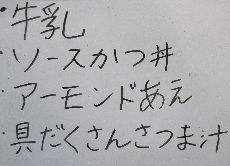 ・牛乳
・ソースかつ丼
・アーモンドあえ
・具だくさんさつま汁